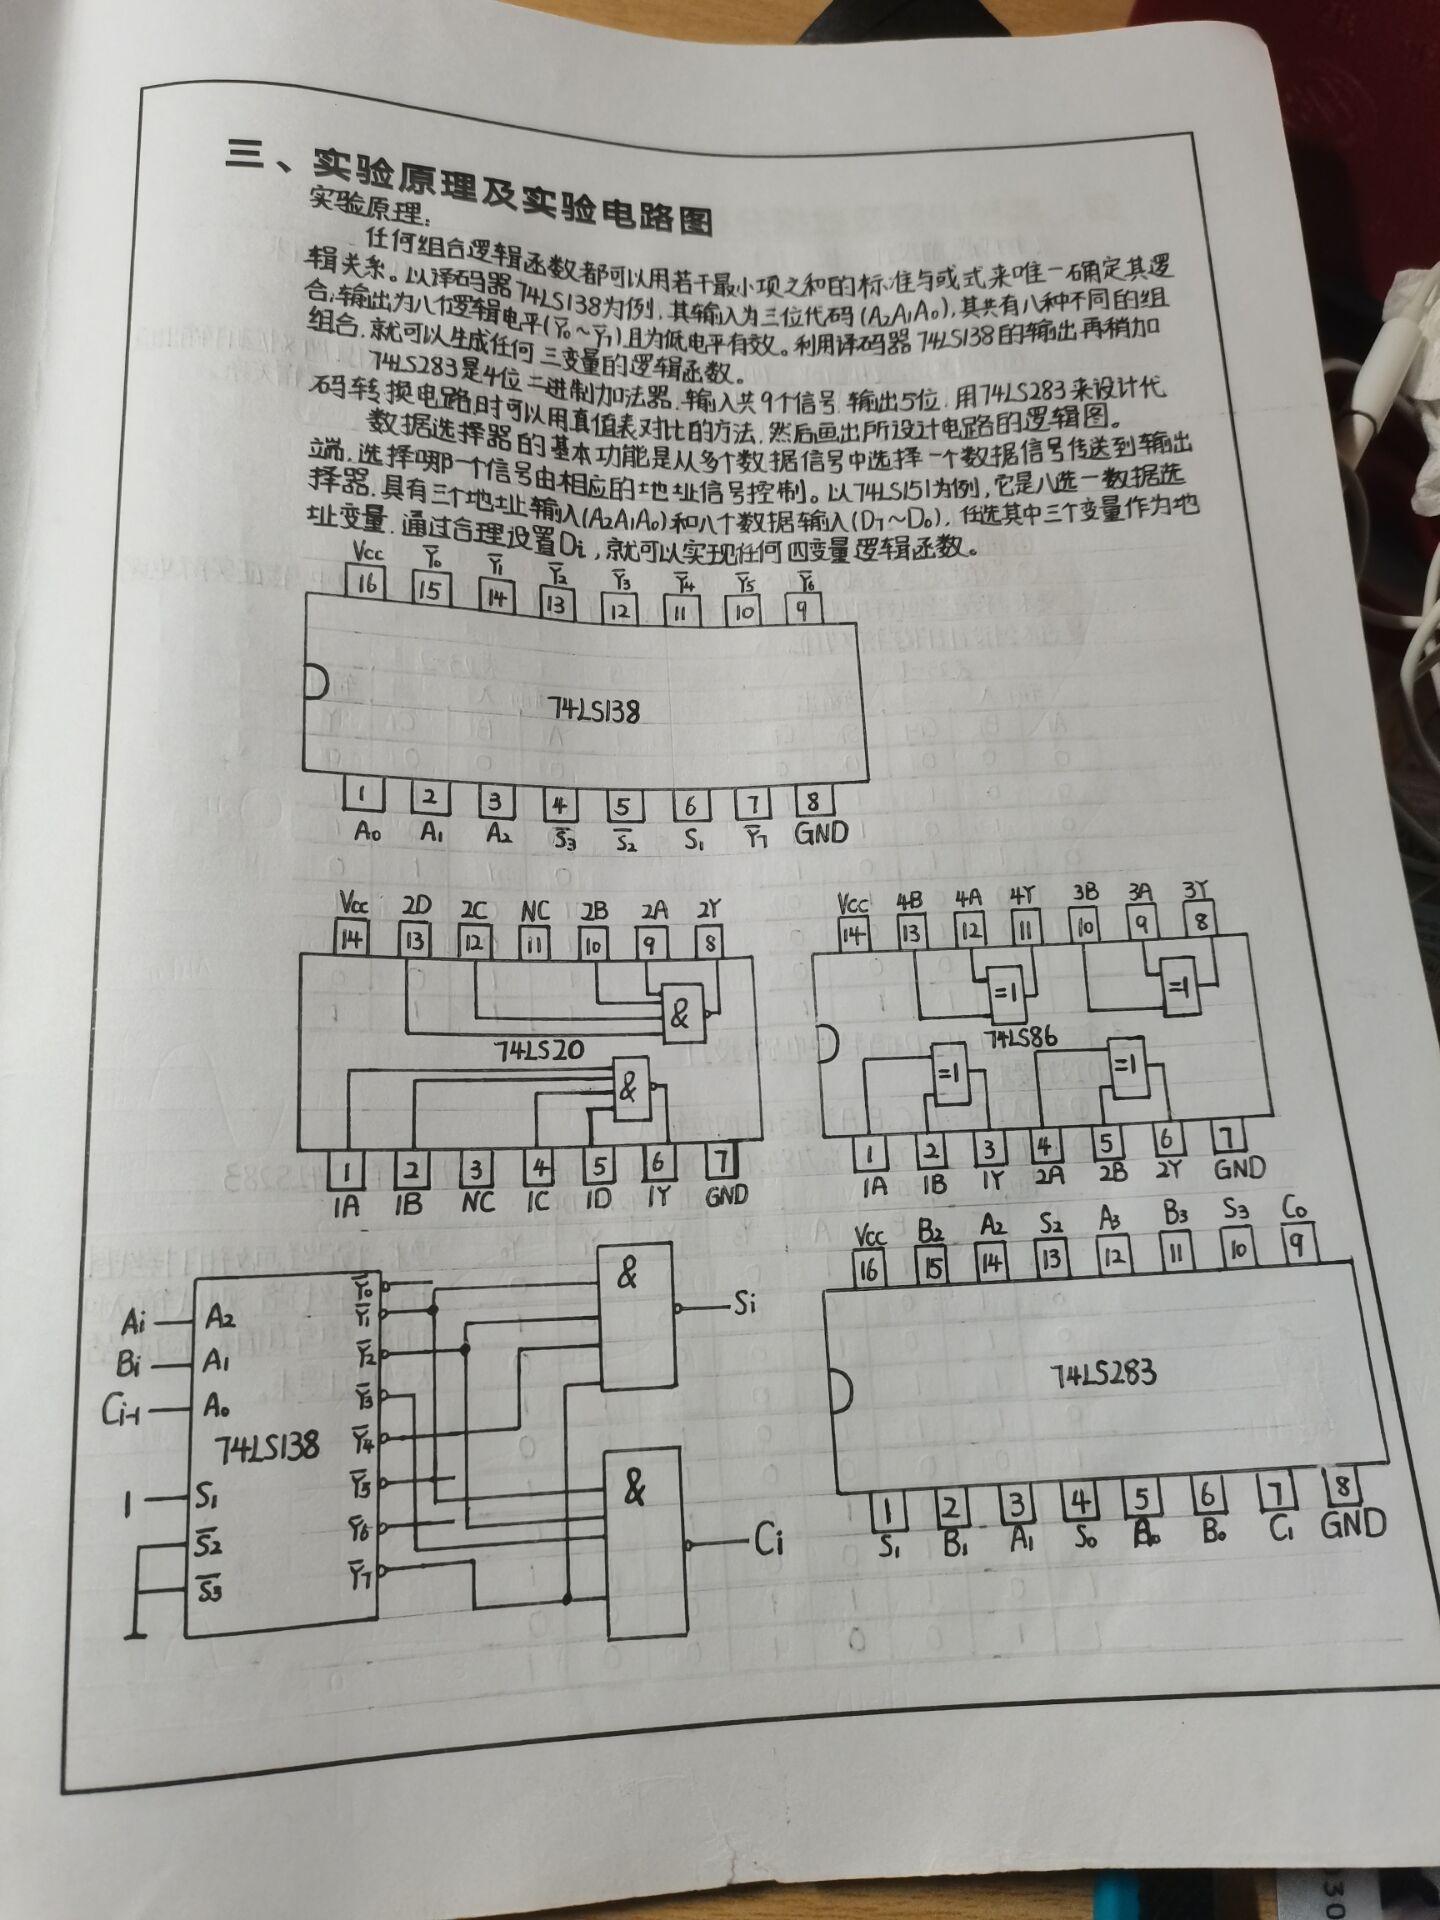 三、实验原理及实验电路图
实验原理:
任何组合逻辑函数都可以用若干最小项之和的标准与或式来唯一确定其逻
辑关系。以译码器74LS138为例,其输入为三位代码(A2A1A0),其共有八种不同的组
合;输出为八位逻辑电平(Y̅0~Y̅7)且为低电平有效。利用译码器74LS138的输出再稍加
组合,就可以生成任何三变量的逻辑函数。
74LS283是4位二进制加法器,输入共9个信号,输出5位,用74LS283来设计代
码转换电路时可以用真值表对比的方法,然后画出所设计电路的逻辑图。
数据选择器的基本功能是从多个数据信号中选择一个数据信号传送到输出
端,选择哪一个信号由相应的地址信号控制。以74LS151为例,它是八选一数据选
择器,具有三个地址输入(A2A1A0)和八个数据输入(D7~D0),任选其中三个变量作为地
址变量,通过合理设置Di,就可以实现任何四变量逻辑函数。
Vcc Y̅0 Y̅1 Y̅2 Y̅3 Y̅4 Y̅5 Y̅6
16 15 14 13 12 11 10 9
74LS138
1 2 3 4 5 6 7 8
A0 A1 A2 S̅3 S̅2 S1 Y̅7 GND
Vcc 2D 2C NC 2B 2A 2Y
14 13 12 11 10 9 8
&
74LS20
&
1 2 3 4 5 6 7
1A 1B NC 1C 1D 1Y GND
Vcc 4B 4A 4Y 3B 3A 3Y
14 13 12 11 10 9 8
=1 =1
74LS86
=1 =1
1 2 3 4 5 6 7
1A 1B 1Y 2A 2B 2Y GND
Ai A2 Y̅0 & Si
Bi A1 Y̅1
Ci-1 A0 Y̅2
74LS138 Y̅3
Y̅4
1 S1 Y̅5 & Ci
S̅2 Y̅6
S̅3 Y̅7
Vcc B2 A2 S2 A3 B3 S3 C0
16 15 14 13 12 11 10 9
74LS283
1 2 3 4 5 6 7 8
S1 B1 A1 S0 A0 B0 C1 GND